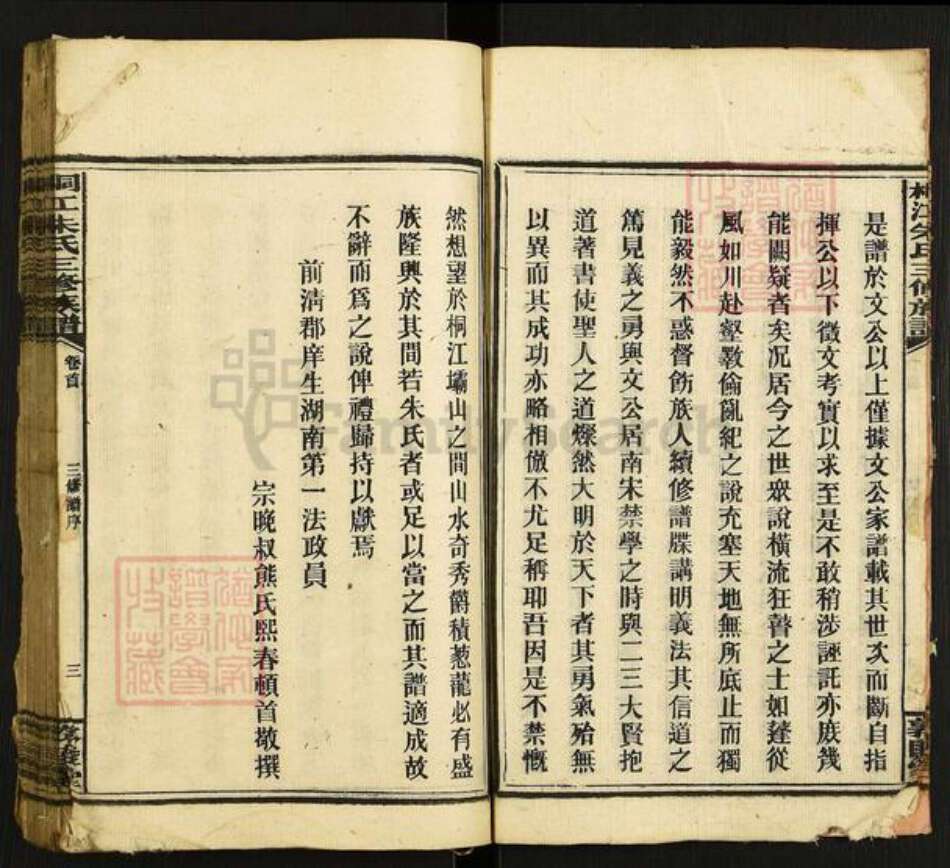 是譜於文公以上僅據文公家譜載其世次而斷自指
揮公以下徵文考實以求至是不敢稍涉誣託亦庶幾
能闕疑者矣况居今之世衆說橫流狂瞽之士如蓬從
風如川赴壑斁倫亂紀之說充塞天地無所底止而獨
能毅然不惑督飭族人續修譜牒講明義法其信道之
篤見義之勇與文公居南宋禁學之時與二三大賢抱
道著書使聖人之道燦然大明於天下者其勇氣殆無
以異而其成功亦略相倣不尤足稱耶吾因是不禁慨
然想望於桐江壩山之間山水奇秀爵積葱蘢必有盛
族隆興於其間若朱氏者或足以當之而其譜適成故
不辭而爲之說俾禮歸持以獻焉
前清郡庠生湖南第一法政員
宗晚叔熊氏熙春頓首敬撰
桐江朱氏三修族譜
卷首
三修譜序
三
FamilySearch